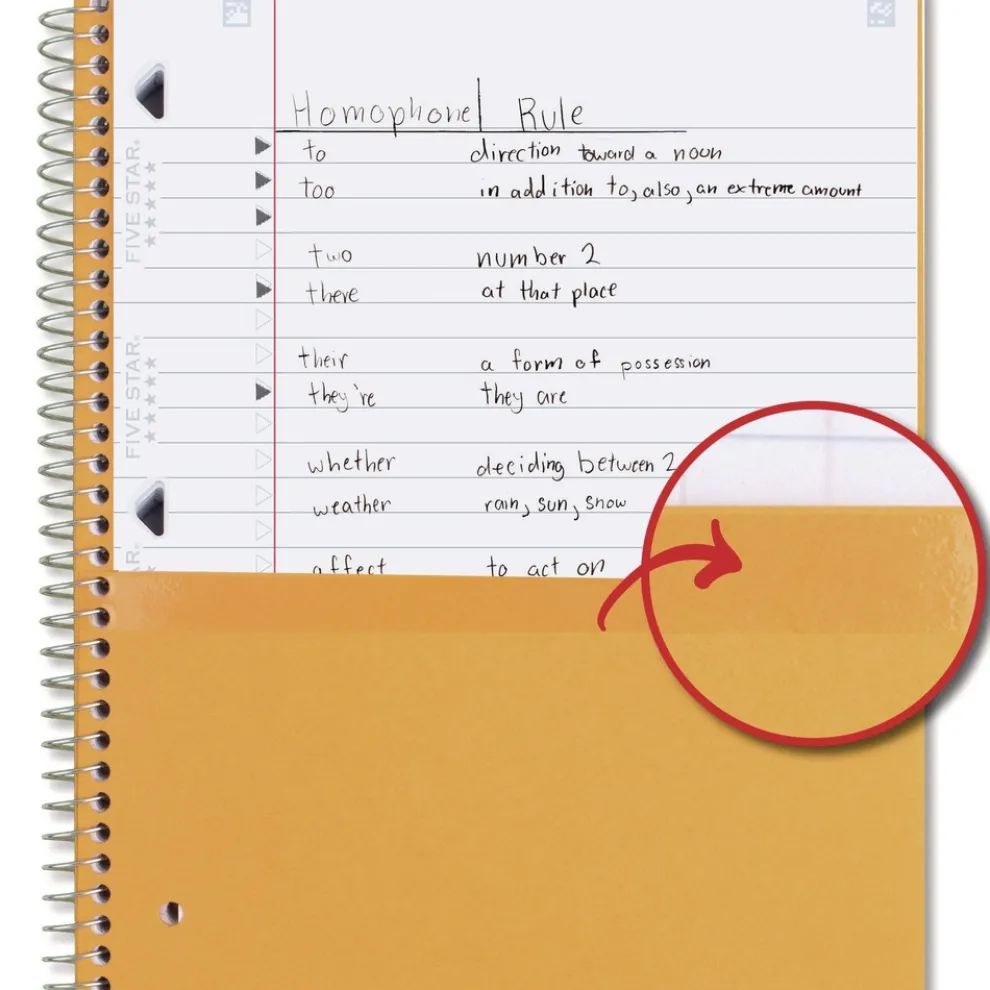 Homophone | Rule
to direction toward a noun
too in addition to, also, an extreme amount
two number 2
there at that place
their a form of possession
they're they are
whether deciding between 2
weather rain, sun, snow
affect to act on
FIVE STAR®
FIVE STAR®
R®